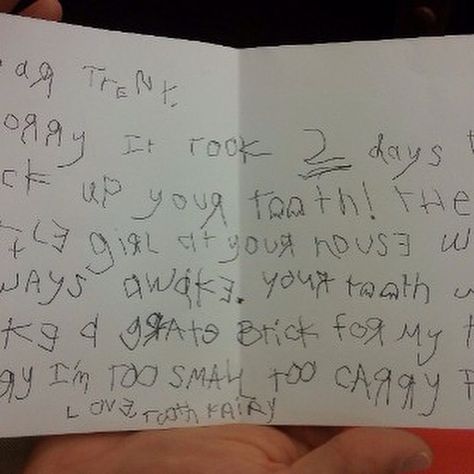 ar TrENt.
orry It TOOK 2 days t
ck up your tooth! THe
ttLe girL at your house w
WAYS awake. your tooth w
ke a grate Brick for My h
ry I'm TOO SMALL TOO CArry i
LOVE TOOTH FAIRY